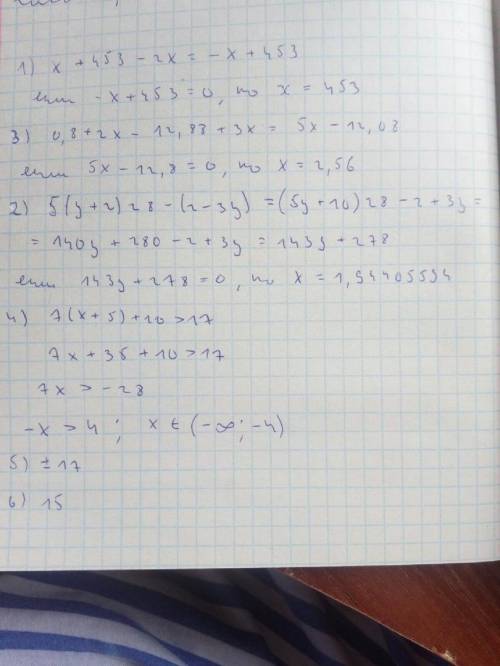 1) x + 453 - 2x = -x + 453
если -x + 453 = 0, то x = 453
3) 0,8 + 2x - 12,88 + 3x = 5x - 12,08
если 5x - 12,8 = 0, то x = 2,56
2) 5(y + 2) 28 - (2 - 3y) = (5y + 10) 28 - 2 + 3y =
= 140y + 280 - 2 + 3y = 143y + 278
если 143y + 278 = 0, то x = 1,94405594
4) 7(x + 5) + 10 > 17
7x + 35 + 10 > 17
7x > - 28
-x > 4 ; x ∈ (-∞; -4)
5) ± 17
6) 15